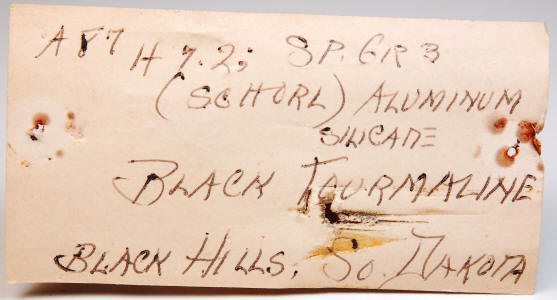 A87 H 7.2; SP. GR 3
(SCHORL) ALUMINUM
SILICATE
BLACK TOURMALINE
BLACK HILLS, SO. DAKOTA